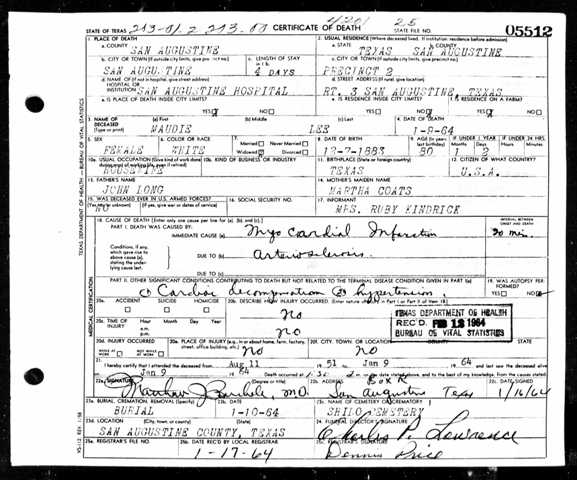 4201 25
STATE OF TEXAS 213-01-2 213.00 CERTIFICATE OF DEATH STATE FILE NO. 05512
1. PLACE OF DEATH
a. COUNTY
SAN AUGUSTINE
2. USUAL RESIDENCE (Where deceased lived. If institution: residence before admission)
a. STATE b. COUNTY
TEXAS SAN AUGUSTINE
b. CITY OR TOWN (If outside city limits, give precinct no.) c. LENGTH OF STAY
SAN AUGUSTINE 4 DAYS
c. CITY OR TOWN (If outside city limits, give precinct no.)
PRECINCT 2
d. NAME OF (If not in hospital, give street address)
HOSPITAL OR
INSTITUTION SAN AUGUSTINE HOSPITAL
d. STREET ADDRESS (If rural, give location)
RT. 3 SAN AUGUSTINE, TEXAS
e. IS PLACE OF DEATH INSIDE CITY LIMITS?
YES NO
e. IS RESIDENCE INSIDE CITY LIMITS? f. IS RESIDENCE ON A FARM?
YES NO YES NO
3. NAME OF DECEASED (Type or print) (a) First (b) Middle (c) Last
MAUDIE LEE
4. DATE OF DEATH
1-9-64
5. SEX 6. COLOR OR RACE 7. Married Never Married Widowed Divorced
FEMALE WHITE
8. DATE OF BIRTH 9. AGE IF UNDER 1 YEAR IF UNDER 24 HRS.
12-7-1883 80 1 2
10a. USUAL OCCUPATION (Give kind of work done during most of working life, even if retired) 10b. KIND OF BUSINESS OR INDUSTRY
HOUSEWIFE
11. BIRTHPLACE (State or foreign country) 12. CITIZEN OF WHAT COUNTRY?
TEXAS U.S.A.
13. FATHER'S NAME
JOHN LONG
14. MOTHER'S MAIDEN NAME
MARTHA COATS
15. WAS DECEASED EVER IN U.S. ARMED FORCES? 16. SOCIAL SECURITY NO.
NO
17. INFORMANT
MRS. RUBY KINDRICK
18. CAUSE OF DEATH [Enter only one cause per line for (a), (b), and (c).]
PART I. DEATH WAS CAUSED BY: INTERVAL BETWEEN ONSET AND DEATH
IMMEDIATE CAUSE (a) Myocardial Infarction 30 min
Conditions, if any, which gave rise to above cause (a), stating the underlying cause last.
DUE TO (b) Arteriosclerosis
DUE TO (c)
PART II. OTHER SIGNIFICANT CONDITIONS CONTRIBUTING TO DEATH BUT NOT RELATED TO THE TERMINAL DISEASE CONDITION GIVEN IN PART I(a) 19. WAS AUTOPSY PERFORMED?
(1) Cardiac decompensation (2) hypertension YES NO
20a. ACCIDENT SUICIDE HOMICIDE 20b. DESCRIBE HOW INJURY OCCURRED. (Enter nature of injury in Part I or Part II of Item 18)
No
20c. TIME OF INJURY Hour Month Day Year
a.m.
p.m.
No
TEXAS DEPARTMENT OF HEALTH
REC'D FEB 13 1964
BUREAU OF VITAL STATISTICS
20d. INJURY OCCURRED WHILE AT WORK NOT WHILE AT WORK 20e. PLACE OF INJURY (e.g., in or about home, farm, factory, street, office building, etc.) 20f. CITY, TOWN, OR LOCATION COUNTY STATE
no no
21. Aug 11 19 51 Jan 9 19 64
Jan 9 19 64 Death occurred at m. on the date stated above, and to the best of my knowledge, from the causes stated.
22a. SIGNATURE (Degree or title) 22b. ADDRESS 22c. DATE SIGNED
M.D. Box R San Augustine Tex 1/16/64
23a. BURIAL, CREMATION, REMOVAL (Specify) 23b. DATE
BURIAL 1-10-64
23c. NAME OF CEMETERY OR CREMATORY
SHILO CEMETERY
23d. LOCATION (City, town, or county) (State)
SAN AUGUSTINE COUNTY, TEXAS
24. FUNERAL DIRECTOR'S SIGNATURE
Charles P. Lawrence
25a. REGISTRAR'S FILE NO. 25b. DATE REC'D BY LOCAL REGISTRAR 25c. REGISTRAR'S SIGNATURE
1-17-64 Dennis Price
TEXAS DEPARTMENT OF HEALTH — BUREAU OF VITAL STATISTICS
MEDICAL CERTIFICATION
VS-112 REV. 1/58